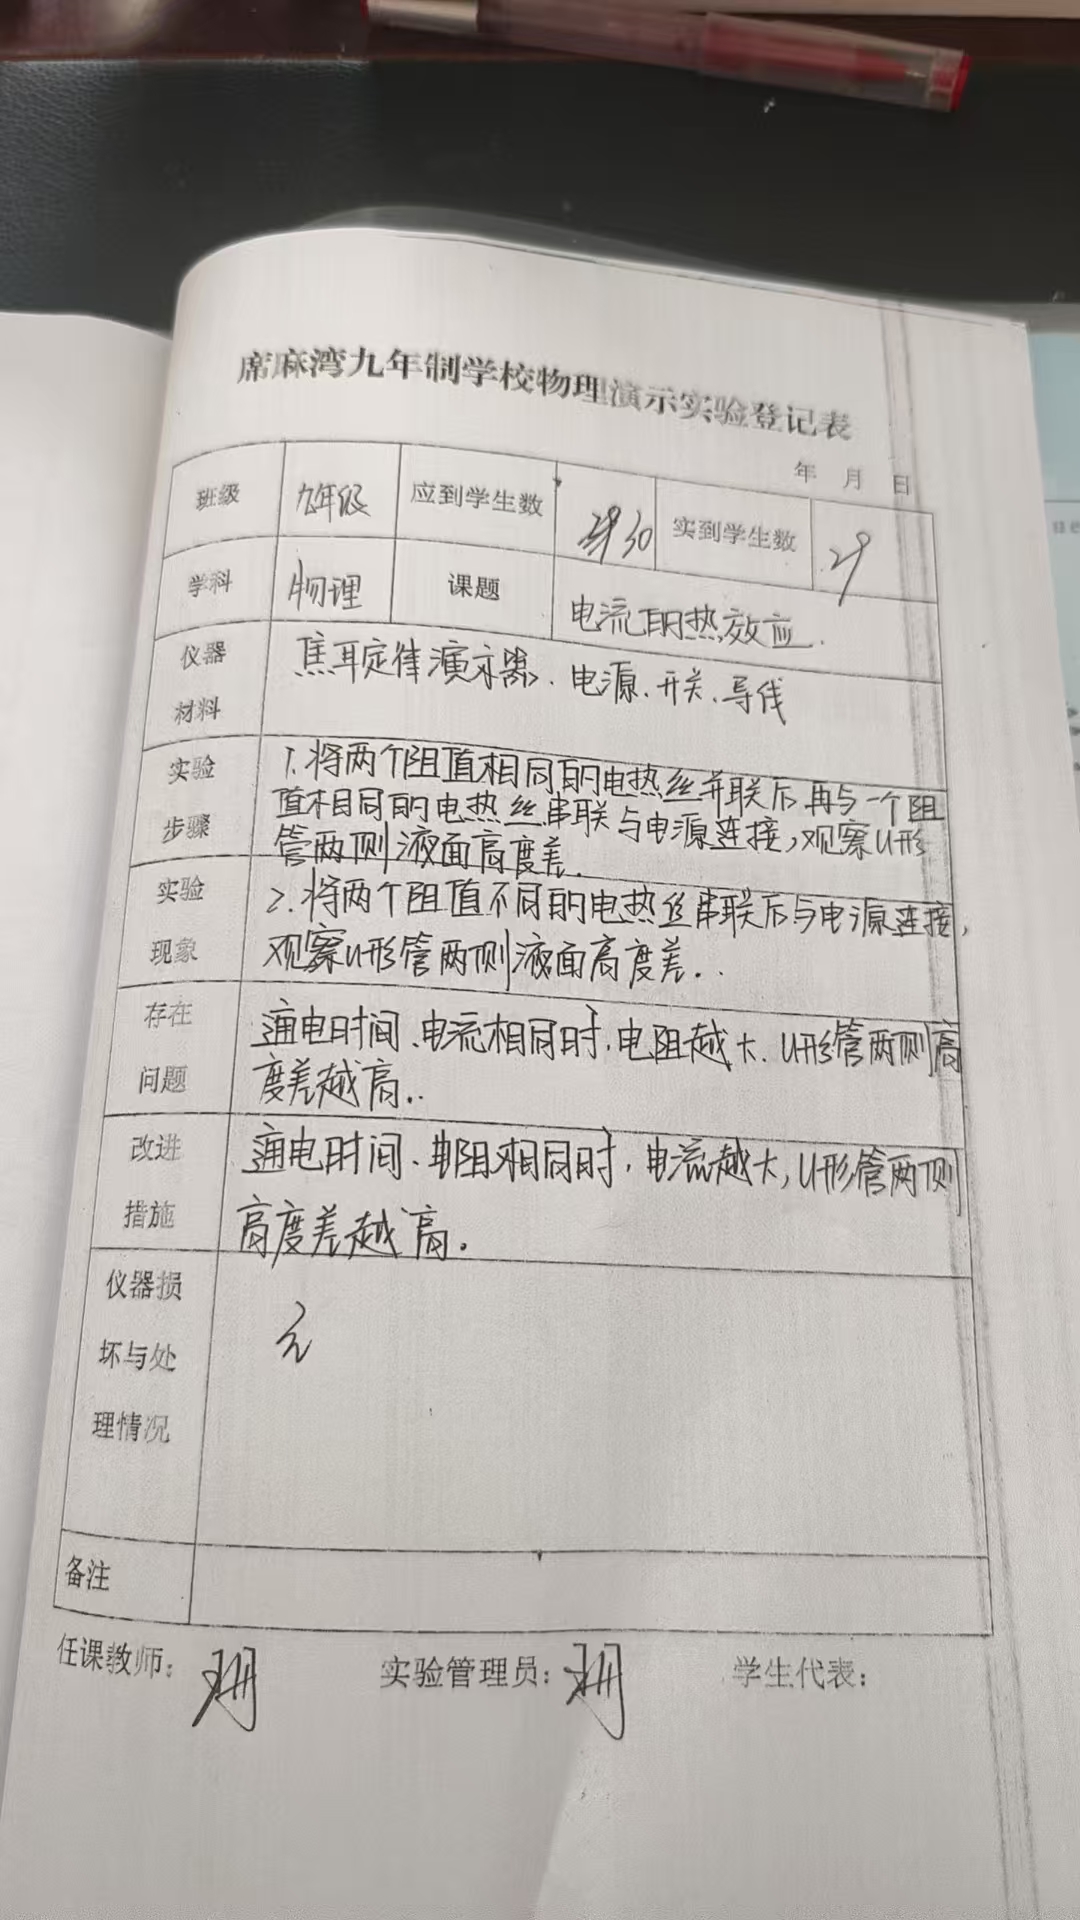 席麻湾九年制学校物理演示实验登记表
年 月 日
班级 九年级 应到学生数 30 实到学生数 29
学科 物理 课题 电流的热效应.
仪器材料 焦耳定律演示器、电源、开关、导线
实验步骤 1.将两个阻值相同的电热丝并联后再与一个阻
值相同的电热丝串联与电源连接,观察U形
管两侧液面高度差.
实验现象 2.将两个阻值不同的电热丝串联后与电源连接,
观察U形管两侧液面高度差..
存在问题 通电时间、电流相同时,电阻越大、U形管两侧高
度差越高..
改进措施 通电时间、电阻相同时,电流越大,U形管两侧
高度差越高.
仪器损坏与处理情况 无
备注
任课教师: 实验管理员: 学生代表: